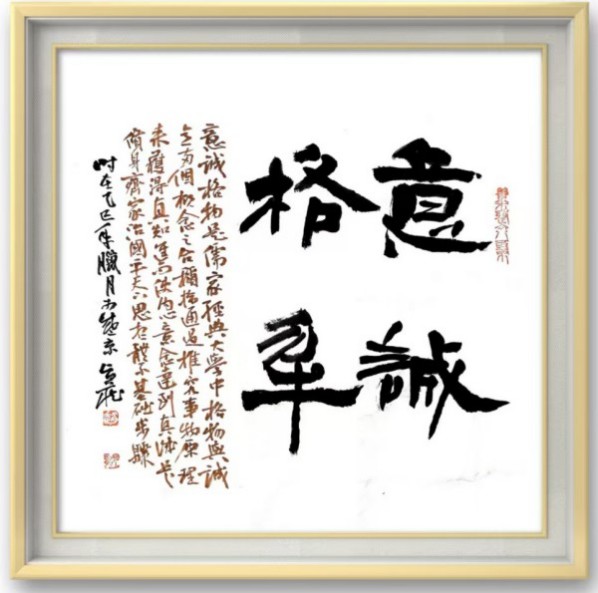 意誠
格
意誠格物是儒家經典大學中格物與誠
意兩個概念之合稱指通過推究事物原理
來獲得真知進而使內心意念達到真誠是
脩身齊家治國平天下思想體系基礎步驟
時在乙巳年臘月於燕京